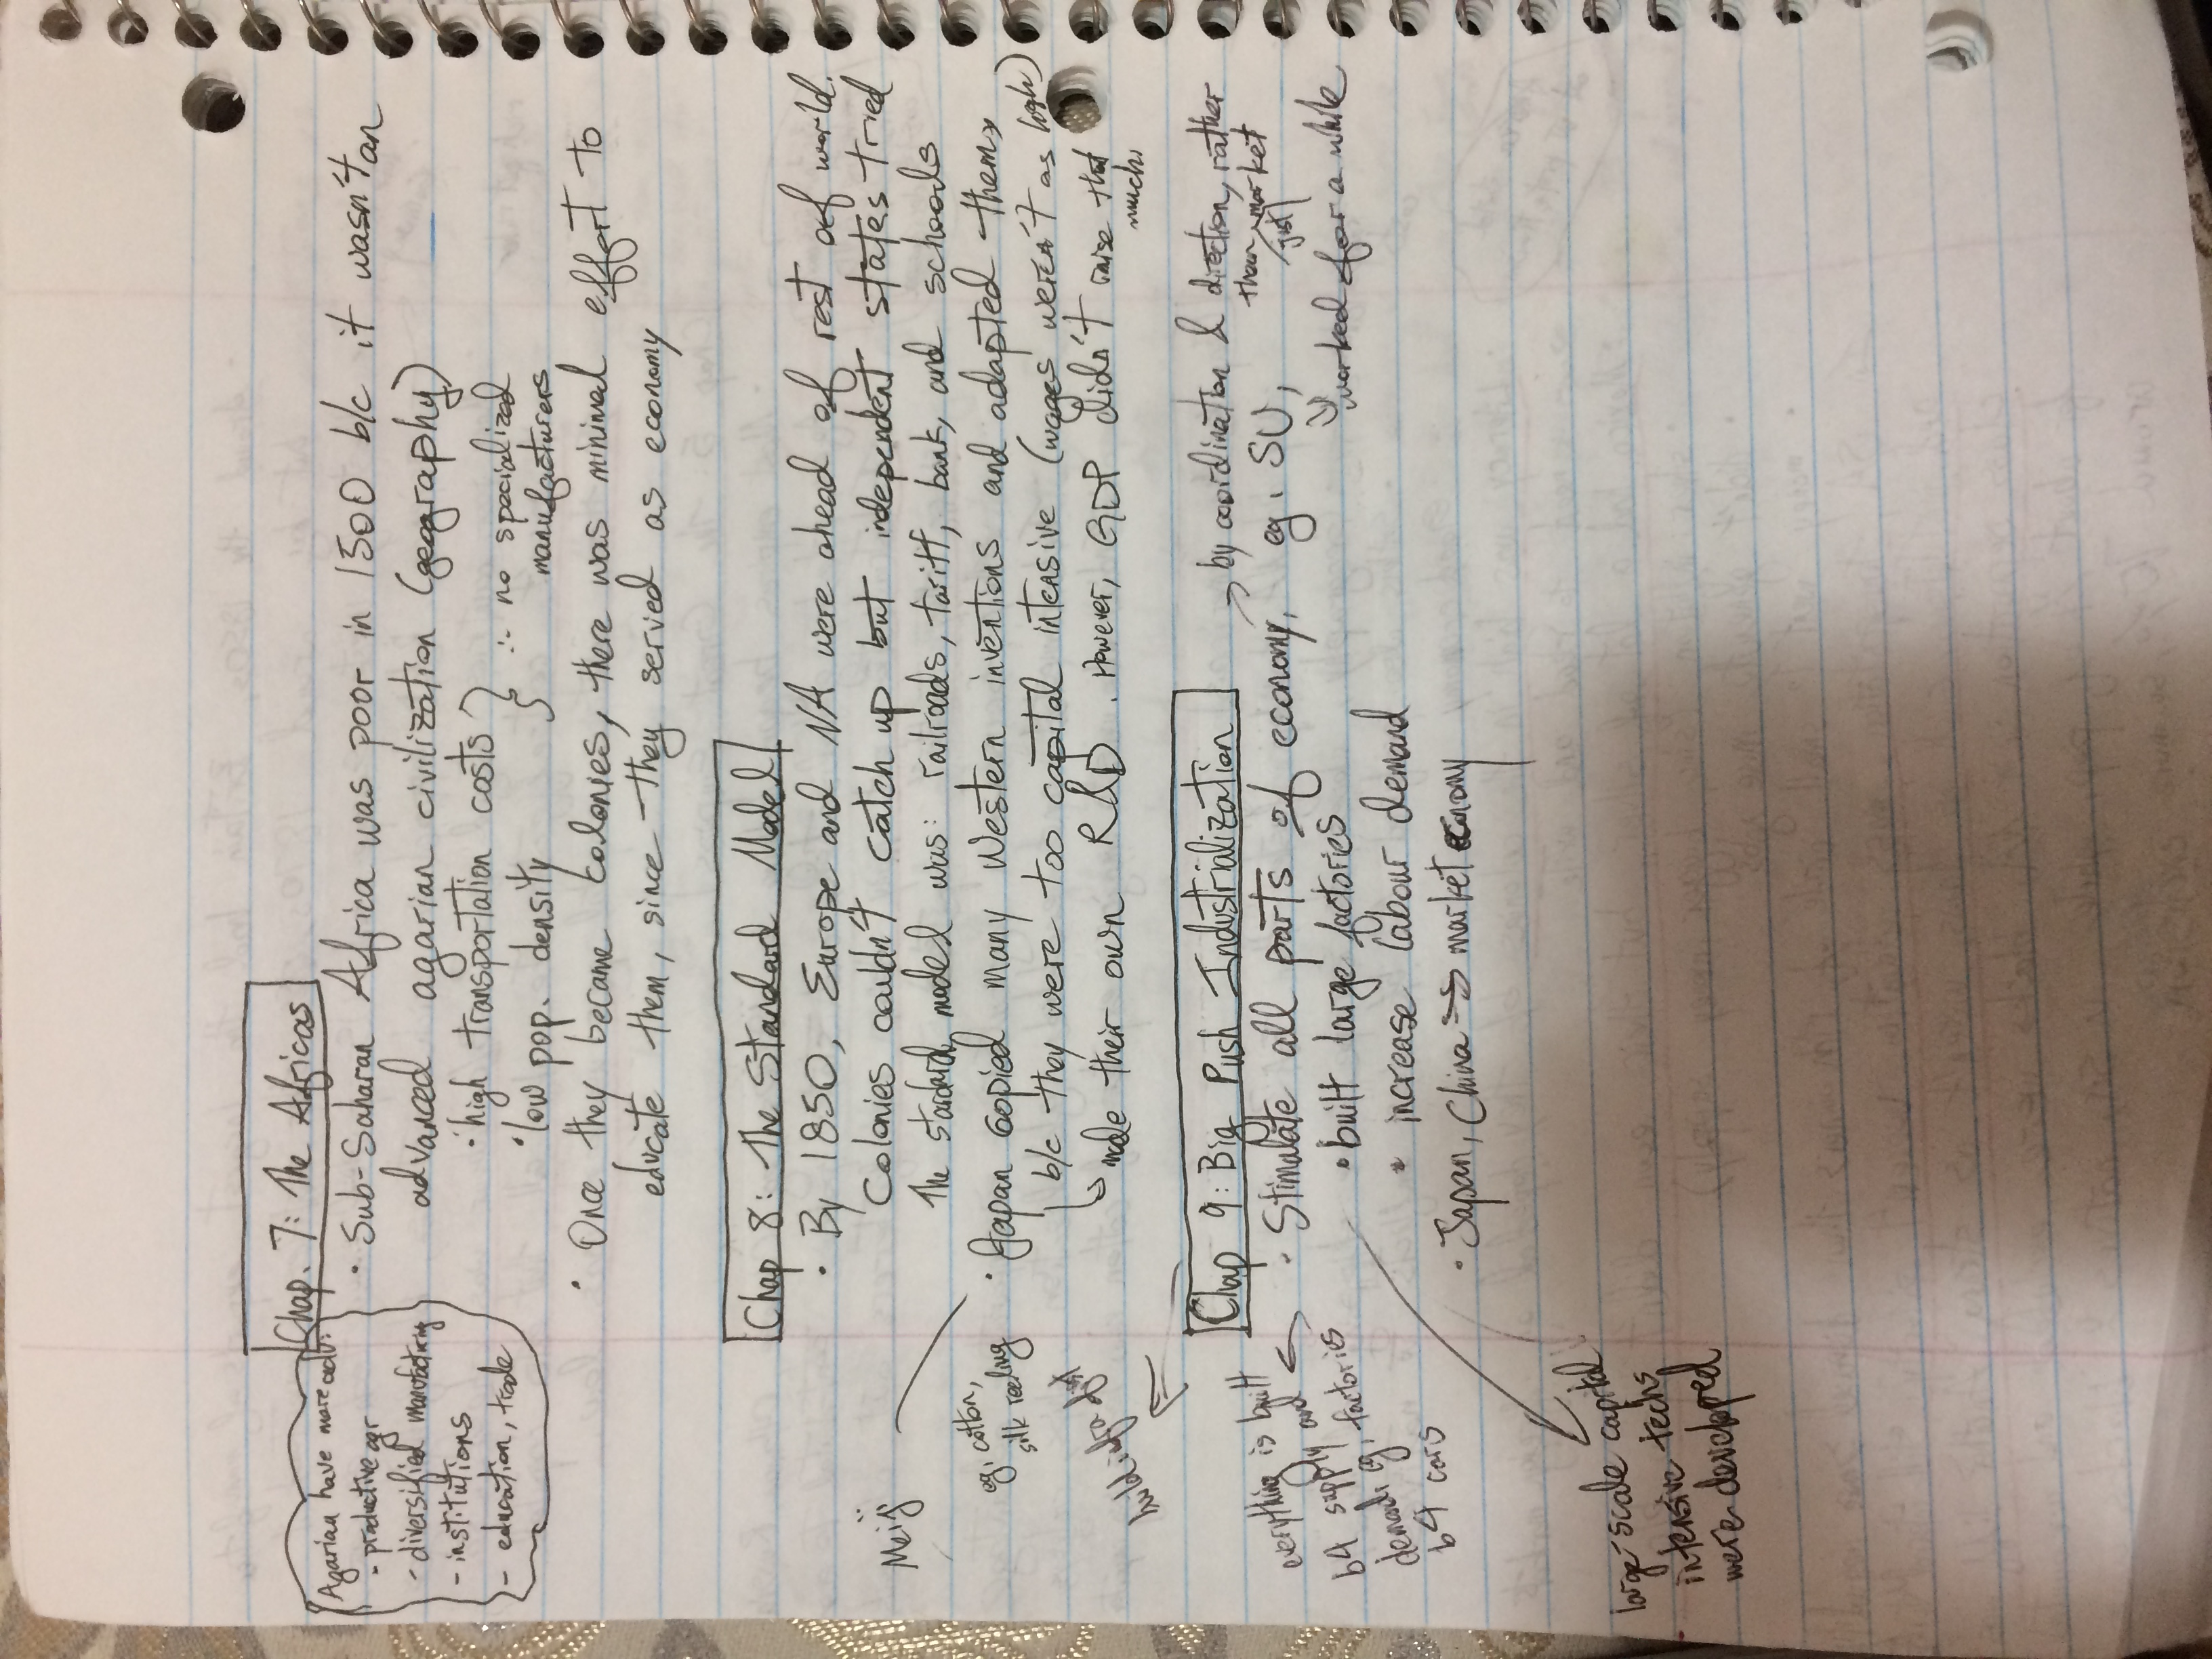 Chap. 7: The Africas
Agarian have more adv:
- productive agr
- diversified manufacturing
- institutions
- education, trade
• Sub-Saharan Africa was poor in 1500 b/c it wasn't an
advanced agarian civilization (geography)
• high transportation costs
• low pop. density
∴ no specialized
manufacturers
• Once they became colonies, there was minimal effort to
educate them, since they served as economy
Chap 8: The Standard Model
• By 1850, Europe and NA were ahead of rest of world.
Colonies couldn't catch up but independent states tried
The standard model was: railroads, tariff, bank, and schools
Meiji
• Japan copied many Western inventions and adapted them,
b/c they were too capital intensive (wages weren't as high)
made their own R&D. However, GDP didn't raise that
much.
eg. cotton,
silk reeling
build infra first
Chap 9: Big Push Industrialization
→ by coordination & direction, rather
than just market
• Stimulate all parts of economy, eg. SU,
worked for a while
• built large factories
• increase labour demand
• Japan, China → market economy
everything is built
b4 supply and
demand, eg, factories
b4 cars
large-scale capital
intensive techs
were developed